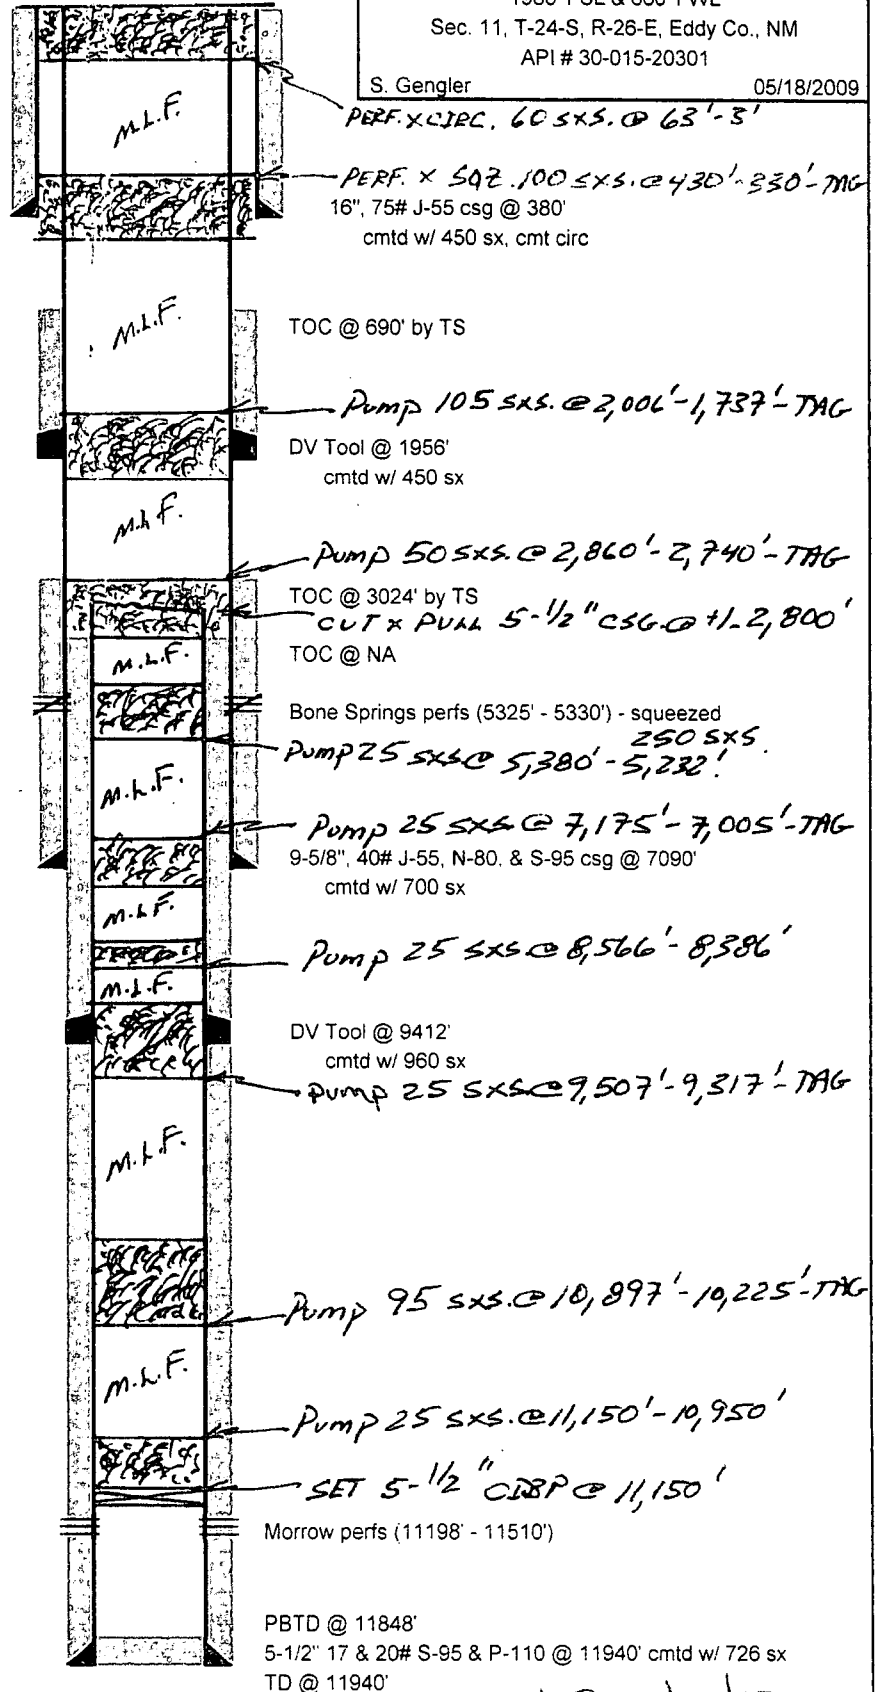 Sec. 11, T-24-S, R-26-E, Eddy Co., NM
API # 30-015-20301
S. Gengler 05/18/2009
PERF. X CIRC. 60 SXS. @ 63'-3'
M.L.F.
PERF. X SQZ. 100 SXS. @ 430'-330'-TAG
16", 75# J-55 csg @ 380'
cmtd w/ 450 sx, cmt circ
M.L.F.
TOC @ 690' by TS
Pump 105 SXS. @ 2,006'-1,737'-TAG
DV Tool @ 1956'
cmtd w/ 450 sx
M.L.F.
Pump 50 SXS. @ 2,860'-2,740'-TAG
TOC @ 3024' by TS
CUT X PULL 5-1/2" CSG. @ +/- 2,800'
TOC @ NA
M.L.F.
Bone Springs perfs (5325' - 5330') - squeezed
250 SXS.
Pump 25 SXS @ 5,380'-5,232'.
M.L.F.
Pump 25 SXS. @ 7,175'-7,005'-TAG
9-5/8", 40# J-55, N-80, & S-95 csg @ 7090'
cmtd w/ 700 sx
M.L.F.
Pump 25 SXS. @ 8,566'-8,386'
M.L.F.
DV Tool @ 9412'
cmtd w/ 960 sx
Pump 25 SXS. @ 9,507'-9,317'-TAG
M.L.F.
Pump 95 SXS. @ 10,897'-10,225'-TAG
M.L.F.
Pump 25 SXS. @ 11,150'-10,950'
SET 5-1/2" CIBP @ 11,150'
Morrow perfs (11198' - 11510')
PBTD @ 11848'
5-1/2" 17 & 20# S-95 & P-110 @ 11940' cmtd w/ 726 sx
TD @ 11940'